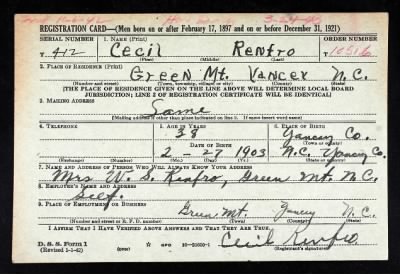 REGISTRATION CARD—(Men born on or after February 17, 1897 and on or before December 31, 1921)
SERIAL NUMBER 1. NAME (Print) ORDER NUMBER
T 412 Cecil Renfro 10516
(First) (Middle) (Last)
2. PLACE OF RESIDENCE (Print)
Green Mt. Yancey N.C.
(Number and street) (Town, township, village, or city) (County) (State)
[THE PLACE OF RESIDENCE GIVEN ON THE LINE ABOVE WILL DETERMINE LOCAL BOARD
JURISDICTION; LINE 2 OF REGISTRATION CERTIFICATE WILL BE IDENTICAL]
3. MAILING ADDRESS
Same
[Mailing address if other than place indicated on line 2. If same insert word same]
4. TELEPHONE 5. AGE IN YEARS 6. PLACE OF BIRTH
38 Yancey Co.
DATE OF BIRTH (Town or county)
2 - 27 1903 N.C. Yancey Co.
(Exchange) (Number) (Mo.) (Day) (Yr.) (State or country)
7. NAME AND ADDRESS OF PERSON WHO WILL ALWAYS KNOW YOUR ADDRESS
Mrs W. S. Renfro, Green Mt. N.C.
8. EMPLOYER'S NAME AND ADDRESS
Self.
9. PLACE OF EMPLOYMENT OR BUSINESS
Green Mt. Yancey N.C.
(Number and street or R. F. D. number) (Town) (County) (State)
I AFFIRM THAT I HAVE VERIFIED ABOVE ANSWERS AND THAT THEY ARE TRUE.
D. S. S. Form 1
(Revised 1-1-42) (over) Cecil Renfro
(Registrant's signature)